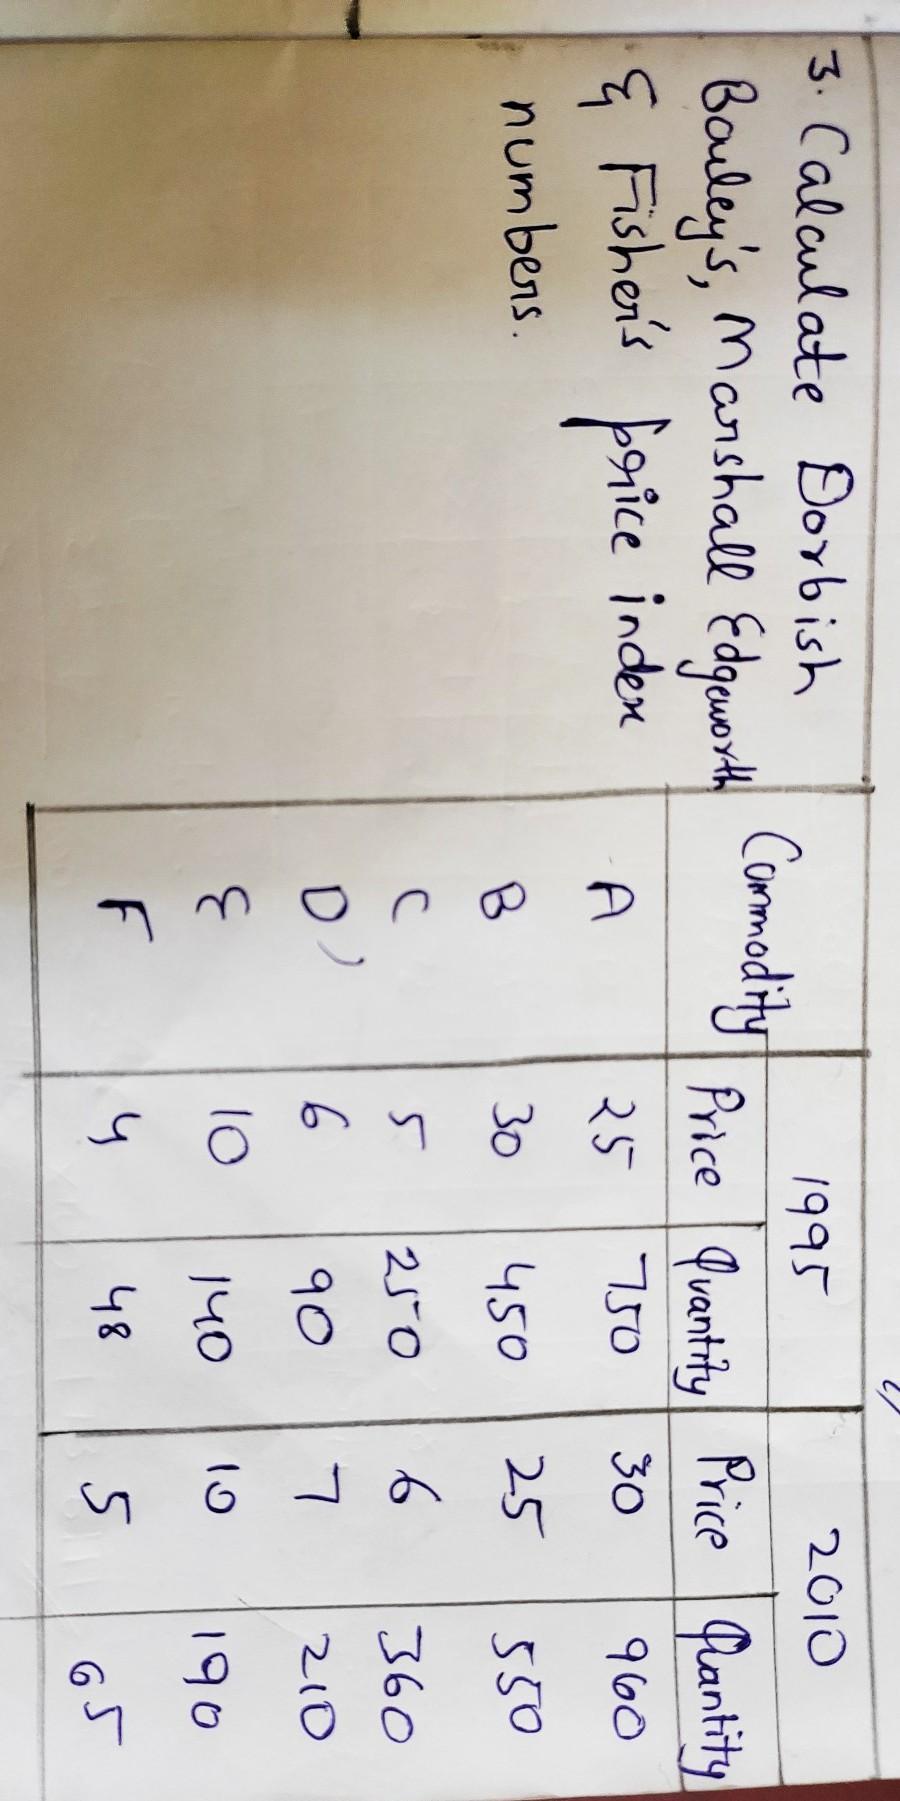 3. Calculate Dorbish
Bowley's, Marshall Edgeworth
& Fisher's price index
numbers.
Commodity 1995 2010
Price Quantity Price Quantity
A 25 750 30 960
B 30 450 25 550
C 5 250 6 360
D 6 90 7 210
E 10 140 10 190
F 4 48 5 65